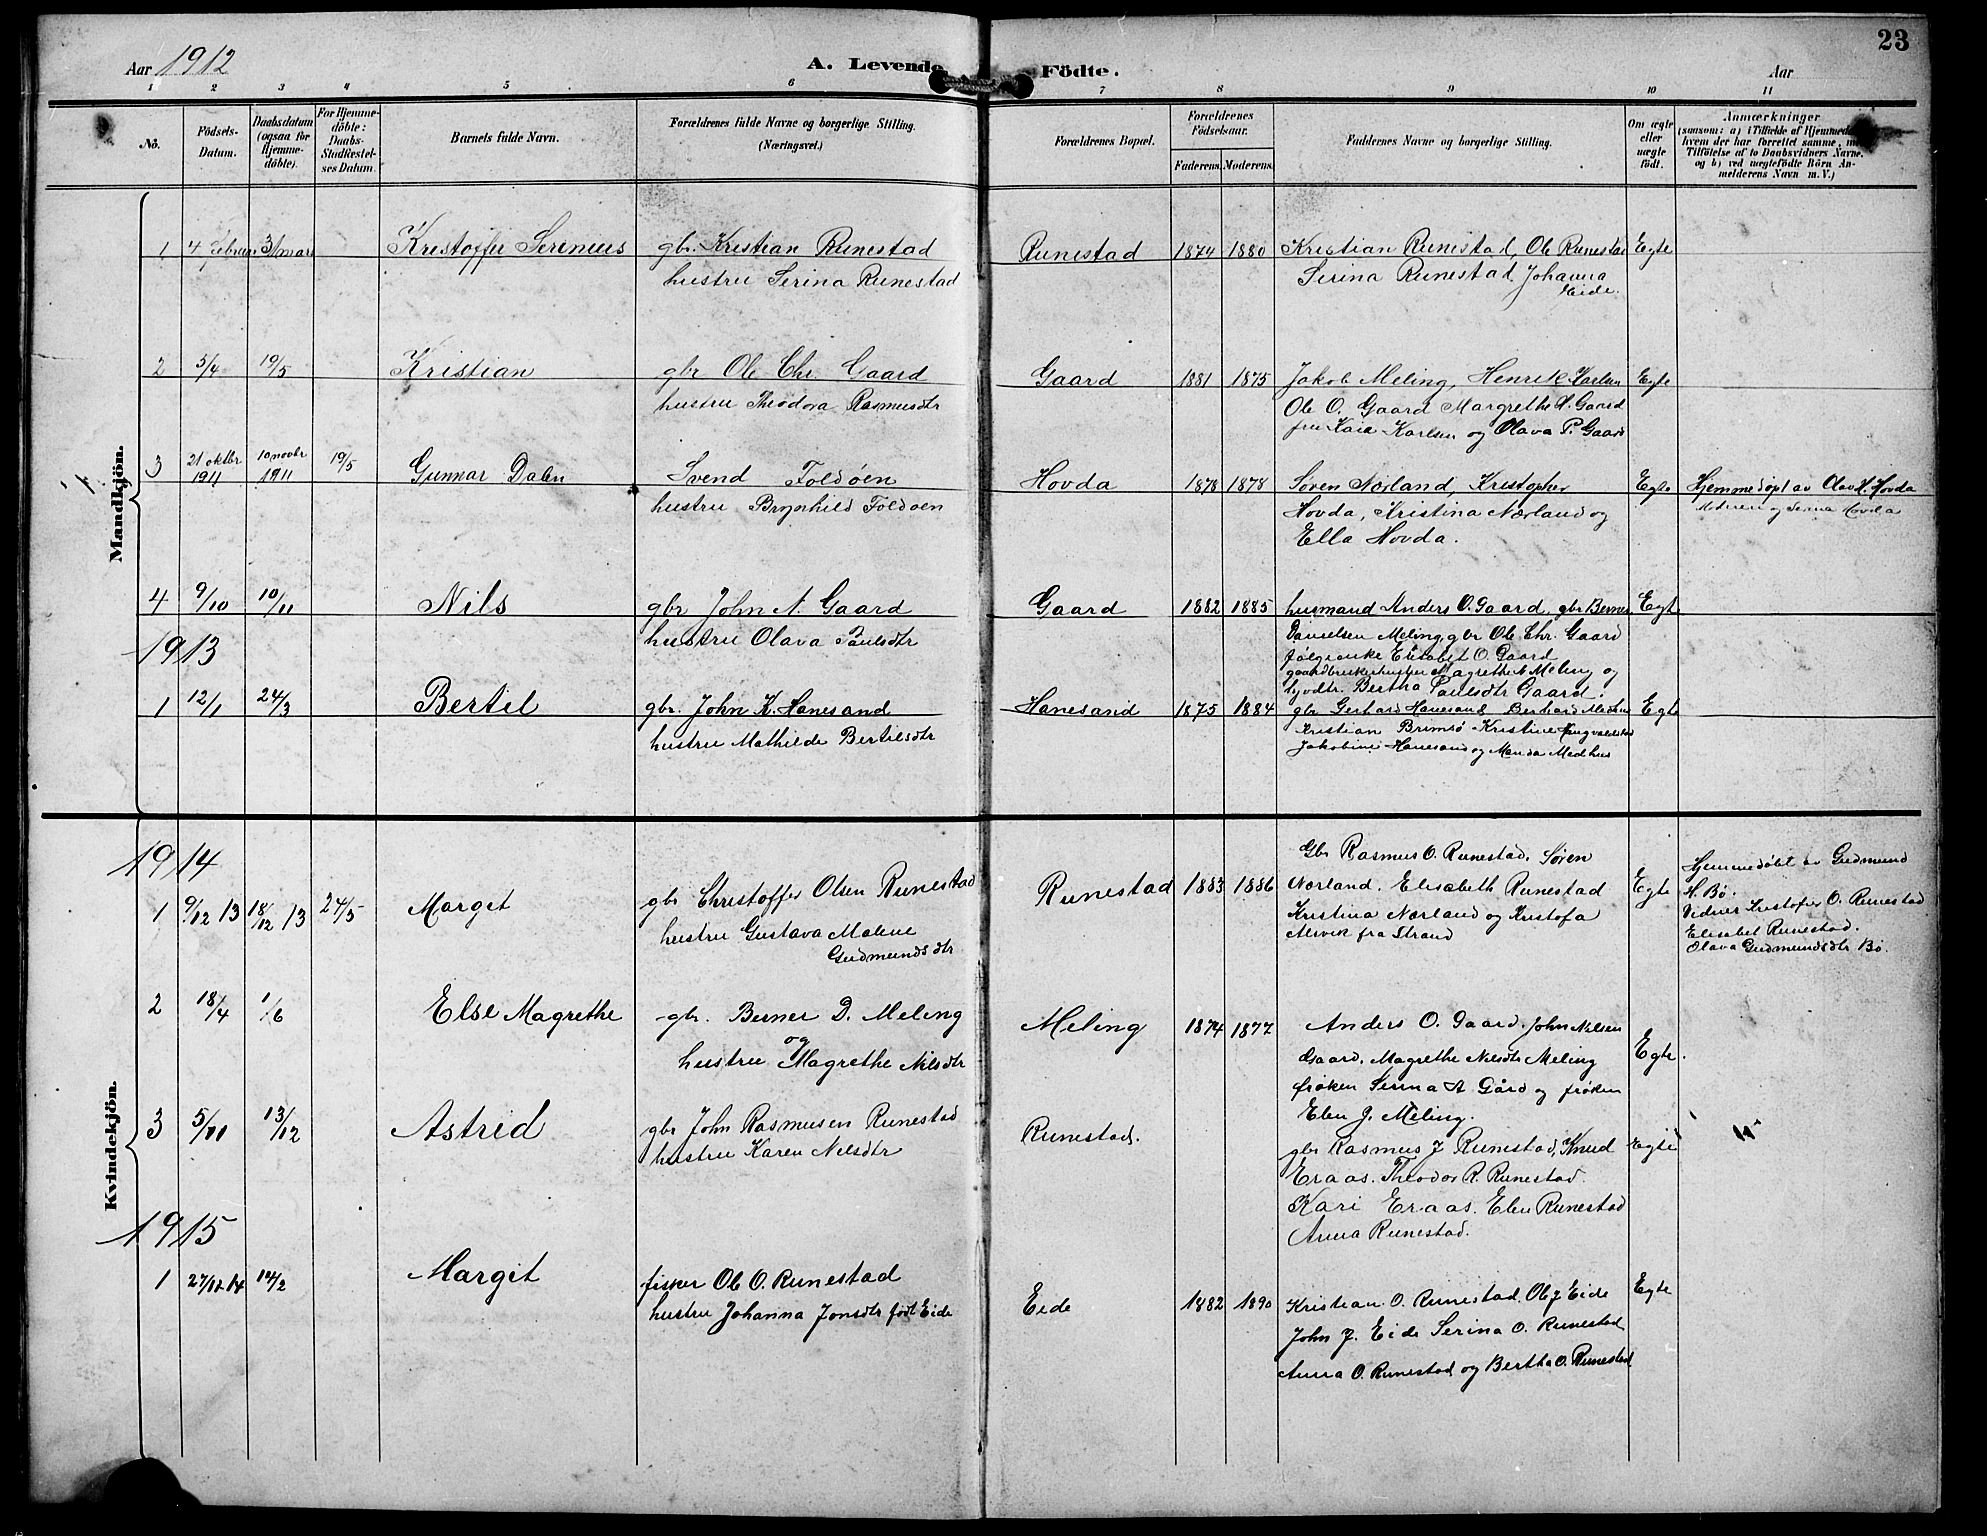 23
Aar 1912
A. Levende Födte.
Aar
1 2 3 4 5 6 7 8 9 10 11
No.
Födsels-Datum.
Daabsdatum (ogsaa for Hjemme-döbte).
For Hjemme-döbte: Daabs-Stadfæstel-ses Datum.
Barnets fulde Navn.
Forældrenes fulde Navne og borgerlige Stilling. (Næringsvei.)
Forældrenes Bopæl.
Forældrenes Födselsaar.
Faderens. Moderens.
Faddernes Navne og borgerlige Stilling.
Om ægte eller uægte födt.
Anmærkninger
(saasom: a) i Tilfælde af Hjemmedaab
hvem der har forrettet samme, med
Tilföielse af to Daabsvidners Navne,
og b) ved uægtefödte Börn An-
melderens Navn m. V.)
Mandkjön.
1 4 februar 31 mars Kristoffer Serenius gbr. Kristian Runestad Runestad 1874 1880 Kristian Runestad, Ole Runestad Egte
hustru Serina Runestad Serina Runestad Johanna
Eide.
2 5/4 19/5 Kristian gbr Ole Chr. Gaard Gaard 1881 1875 Jakob Meling, Henrik Karlsen Egte
hustru Theodora Rasmusdtr Ole O. Gaard Margrethe H. Gaard
fru Kaia Karlsen og Olava P. Gaard
3 21 oktbr 1911 10 novbr 1911 19/5 Gunnar Dalen Svend Foldøen Hovda 1878 1878 Søren Nørland, Kristopher Egte Hjemmedøpt av Olav H. Hovda
hustru Brynhild Foldøen Hovda, Kristina Nørland og Moderen og Serina Hovda
Ella Hovda.
4 9/10 10/11 Nils gbr John N. Gaard Gaard 1882 1885 husmand Anders O. Gaard, gbr Berner Egte
hustru Olava Paulsdtr Danielsen Meling, gbr Ole Chr. Gaard
1913
følgeenke Elisabet O. Gaard
gaardbrukerhustru Magrethe N Meling og
tjvdtr. Bertha Paulsdtr Gaard.
1 12/1 24/3 Bertil gbr. John K. Hanesand Hanesand 1875 1884 gbr Gerhard Hanesand Berhard Medhus Egte
hustru Mathilde Bertilsdtr Kristian Brimsø Kristine Rangvaldstad
Jakobine Hanesand og Manda Medhus
Kvindekjön.
1914
1 9/12 13 18/12 13 24/5 Margit gbr Christoffer Olsen Runestad Runestad 1883 1886 Gbr Rasmus O. Runestad. Søren Egte Hjemmedøbt av Gudmund
hustru Gustava Malene Nørland. Elisabeth Runestad H. Bø.
Gudmundsdtr Kristina Nørland og Kristofa Vidner Kristofer O. Runestad
Alsvik fra Strand Elisabet Runestad.
Olava Gudmundsdtr Bø.
2 18/4 1/6 Else Magrethe gbr. Berner D. Meling Meling 1874 1877 Anders O. Gaard. John Nilsen Egte.
og
hustru Magrethe Nilsdtr Gaard. Magrethe Nilsdtr Meling
frøken Serina A Gård og frøken
Elen J. Meling.
3 5/11 13/12 Astrid gbr John Rasmusen Runestad Runestad. gbr Rasmus J Runestad, Knud Egte
hustru Karen Nilsdtr Eraas. Theodor R. Runestad.
Kari Eraas. Elen Runestad
Anna Runestad.
1915
1 27/12 14 14/2 Margit fisker Ole O. Runestad Eide 1882 1890 Kristian O. Runestad. Ole J Eide Egte
hustru Johanna Jonsdtr født Eide John J. Eide Serina O. Runestad
Anna O. Runestad og Bertha O. Runestad